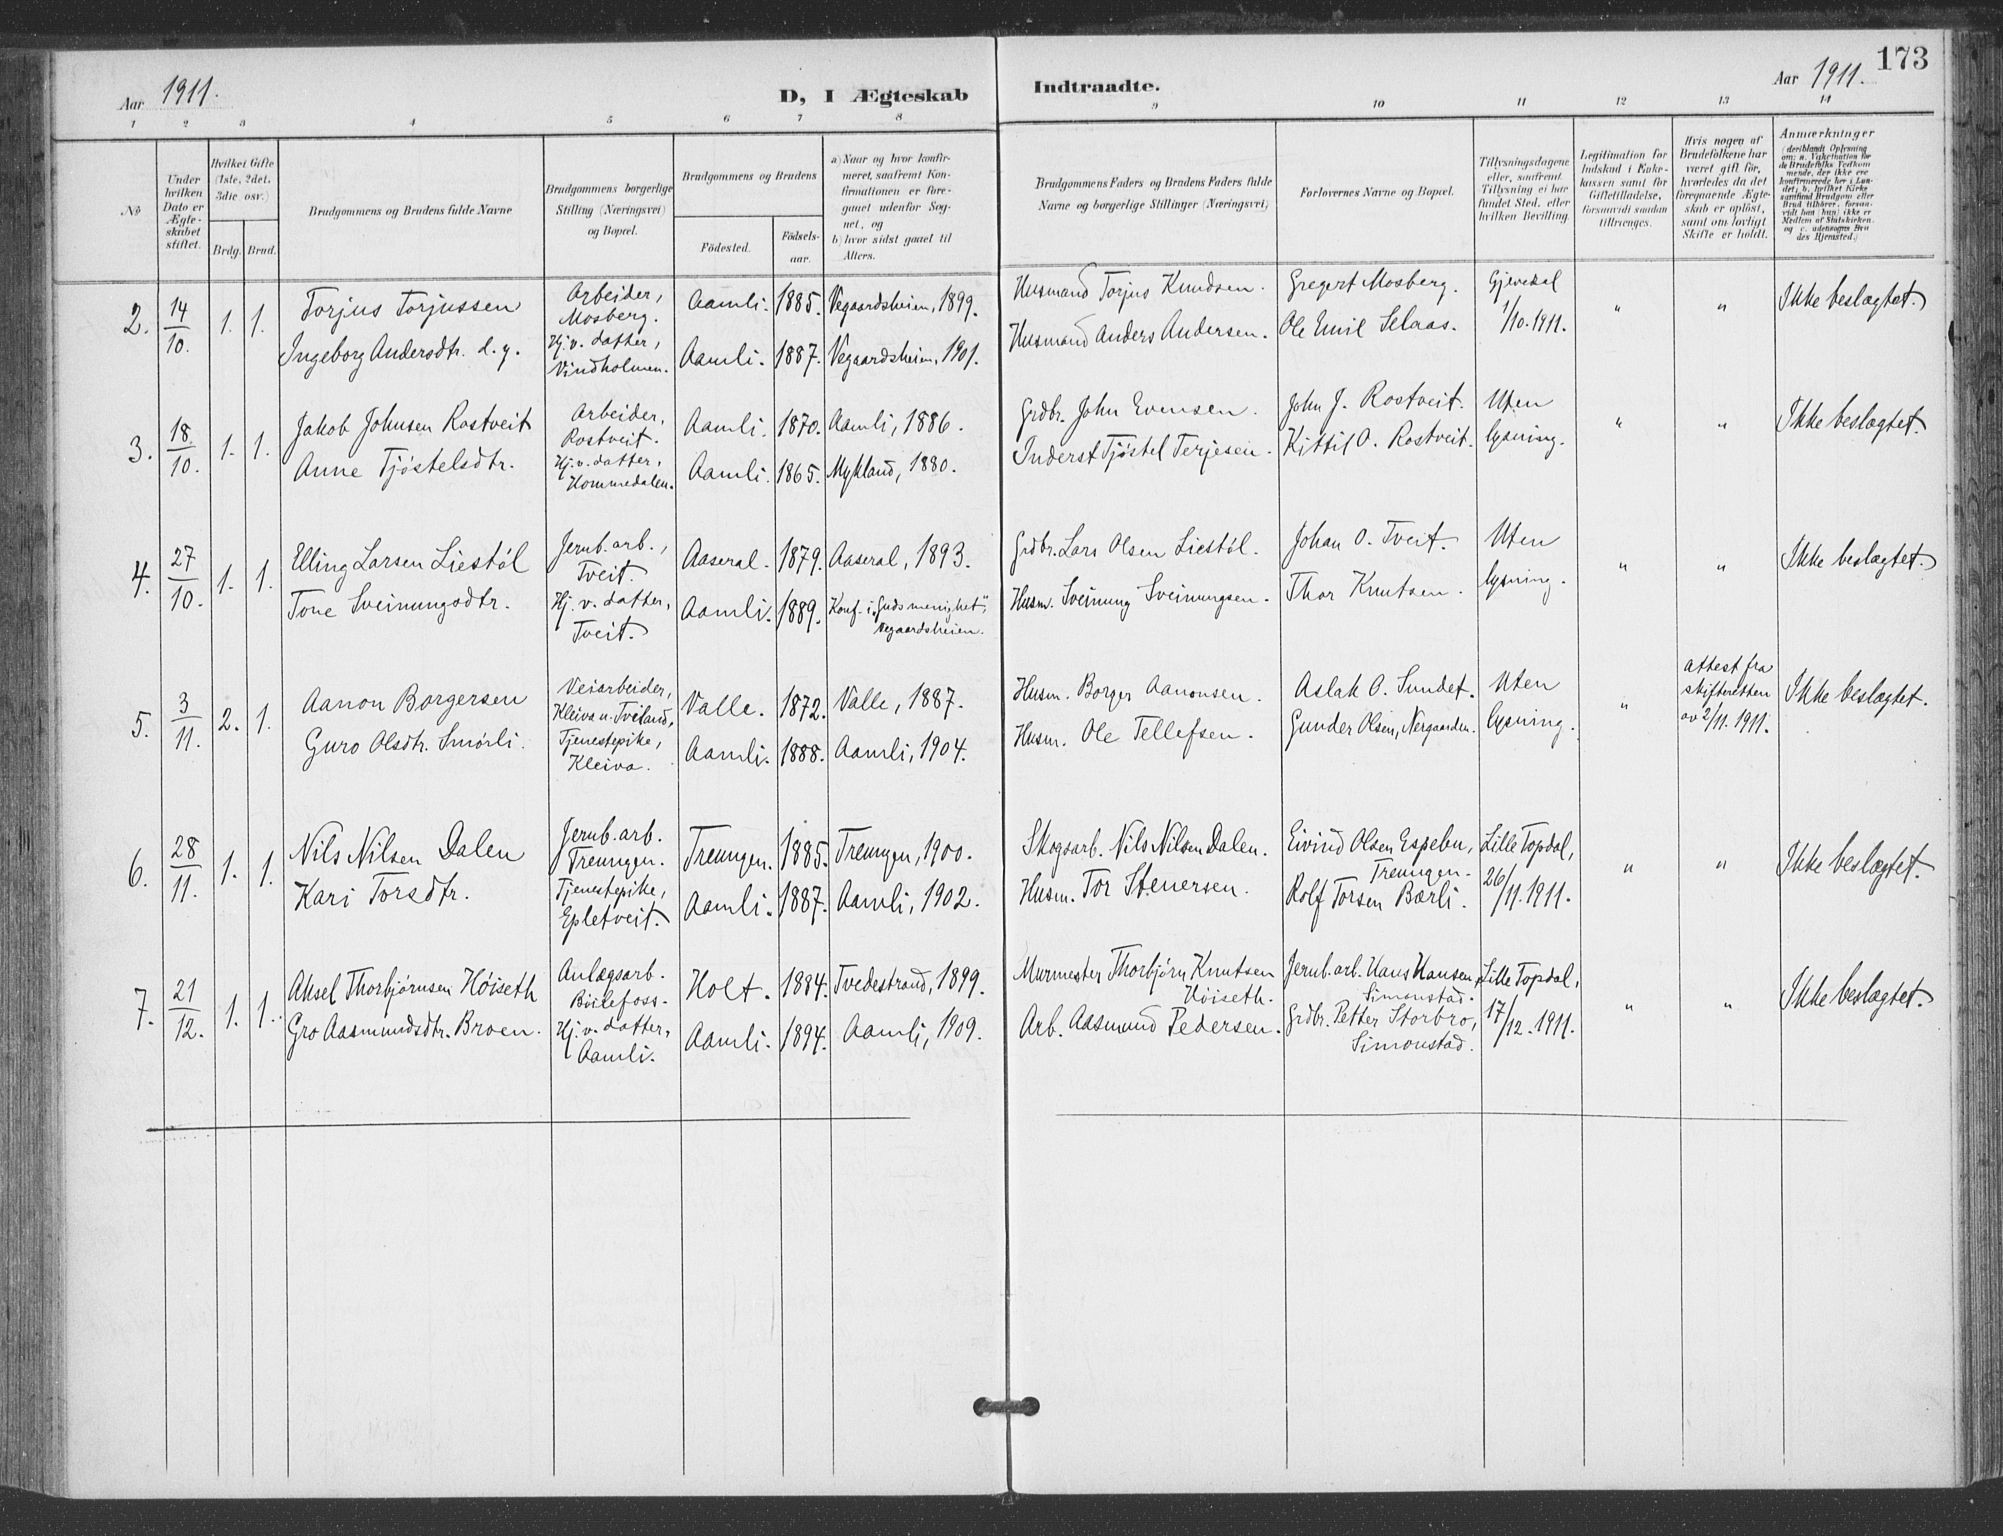 Aar 1911.
D, I Ægteskab
Indtraadte.
Aar 1911.
173
1 2 3 4 5 6 7 8 9 10 11 12 13 14
No
Under hvilken Dato er Ægteskabet stiftet.
Hvilket Gifte (1ste, 2det, 3die osv.)
Brdg. Brud.
Brudgommens og Brudens fulde Navne
Brudgommens borgerlige Stilling (Næringsvei) og Bopæl.
Brudgommens og Brudens
Födested.
Födselsaar.
a) Naar og hvor konfirmeret, saafremt Konfirmationen er foregaaet udenfor Sognet, og
b) hvor sidst gaaet til Alters.
Brudgommens Faders og Brudens Faders fulde Navne og borgerlige Stillinger (Næringsvei)
Forlovernes Navne og Bopæl.
Tillysningsdagene eller, saafremt Tillysning ei har fundet Sted, efter hvilken Bevilling.
Legitimation for Indskud i Enkekassen samt for Giftetilladelse, forsaavidt saadan tiltrænges.
Hvis nogen af Brudefolkene har været gift før, hvorledes da det foregaaende Ægteskab er opløst, samt om lovligt Skifte er holdt.
Anmærkninger
2. 14/10. 1. 1.
Torjus Torjussen
Ingeborg Andersdtr. d. y.
Arbeider,
Mosberg.
Hj. v. datter,
Vindholmen.
Aamli. 1885. Vegaardsheien, 1899.
Aamli. 1887. Vegaardsheien, 1901.
Husmand Torjus Knudsen.
Husmand Anders Andersen.
Gregert Mosberg.
Ole Emil Selaas.
Gjevedal
1/10. 1911.
" "
Ikke beslægtet.
3. 18/10. 1. 1.
Jakob Johnsen Rostveit
Anne Tjöstelsdtr.
Arbeider,
Rostveit.
Hj. v. datter,
Hommedalen.
Aamli. 1870. Aamli, 1886.
Aamli. 1865. Mykland, 1880.
Grdbr. John Evensen.
Inderst Tjöstel Terjesen.
John J. Rostveit.
Kittil O. Rostveit.
Uten
lysning.
" "
Ikke beslægtet.
4. 27/10. 1. 1.
Elling Larsen Liestöl
Tone Sveinungsdtr.
Jernb. arb.,
Tveit.
Hj. v. datter,
Tveit.
Aaseral. 1879. Aaseral, 1893.
Aamli. 1889. Konf. i "Guds menighet",
Vegaardsheien.
Grdbr. Lars Olsen Liestöl.
Husm. Sveinung Sveinungsen.
Johan O. Tveit.
Thor Knutsen.
Uten
lysning.
" "
Ikke beslægtet.
5. 3/11. 2. 1.
Aanon Borgersen
Guro Olsdtr. Smörli.
Veiarbeider,
Kleiva u. Tveland,
Tjenestepike,
Kleiva.
Valle. 1872. Valle, 1887.
Aamli. 1888. Aamli, 1904.
Husm. Borger Aanonsen.
Husm. Ole Tellefsen.
Aslak O. Sundet.
Gunder Olsen, Nergaarden.
Uten
lysning.
"
attest fra
skifteretten
av 2/11. 1911.
Ikke beslægtet.
6. 28/11. 1. 1.
Nils Nilsen Dalen
Kari Torsdtr.
Jernb. arb.
Treungen.
Tjenestepike,
Epletveit.
Treungen. 1885. Treungen, 1900.
Aamli. 1887. Aamli, 1902.
Skogsarb. Nils Nilsen Dalen.
Husm. Tor Stenersen.
Eivind Olsen Espebu,
Treungen.
Rolf Torsen Bærli.
Lille Topdal,
26/11. 1911.
" "
Ikke beslægtet.
7. 21/12. 1. 1.
Aksel Thorbjörnsen Höiseth
Gro Aasmundsdtr. Broen.
Anlægsarb.
Böilefoss.
Hj. v. datter,
Aamli.
Holt. 1884. Tvedestrand, 1899.
Aamli. 1894. Aamli, 1909.
Murmester Thorbjörn Knutsen
Höiseth.
Arb. Aasmund Pedersen.
Jernb. arb. Hans Hansen,
Simonstad.
Grdbr. Petter Storbro,
Simonstad.
Lille Topdal,
17/12. 1911.
" "
Ikke beslægtet.